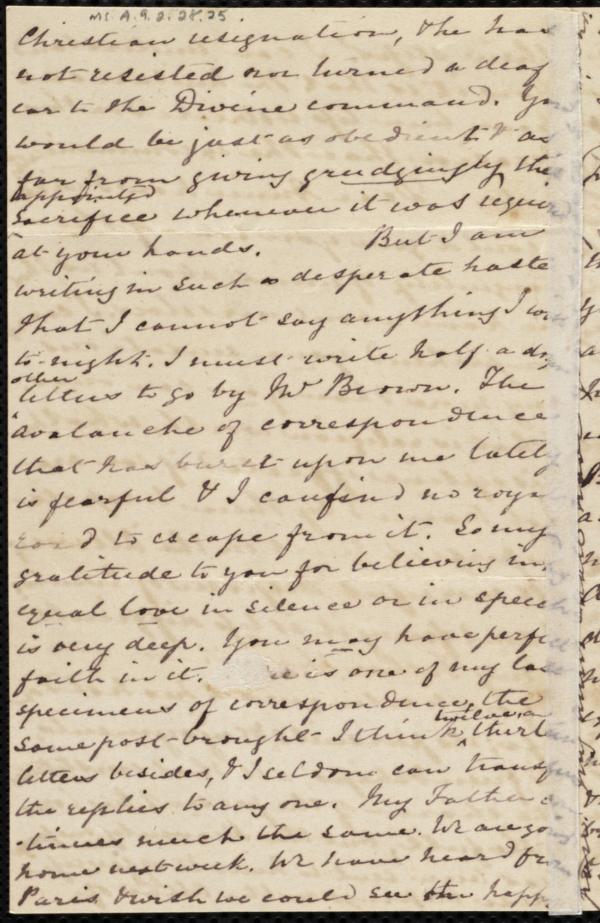 Ms. A. 9. 2. 28. 25.
Christian resignation, & he has
not resisted nor turned a deaf
ear to the Divine command. You
would be just as obedient & as
far from giving grudgingly the
appointed
sacrifice whenever it was requir
at your hands. But I am
writing in such a desperate haste
that I cannot say anything I wo
to-night. I must write half a do
other
letters to go by Mr Brown. The
avalanche of correspondence
that has burst upon me lately
is fearful & I can find no roya
road to escape from it. So my
gratitude to you for believing in
equal love in silence or in speech
is very deep. You may have perfe
faith in it. e is one of my la
specimens of correspondence, the
twelve or
same post brought I think thirt
letters besides, & I seldom can transf
the replies to any one. My Father
-tinues much the same. We are go
home next week. We have heard fr
Paris & wish we could see the happ